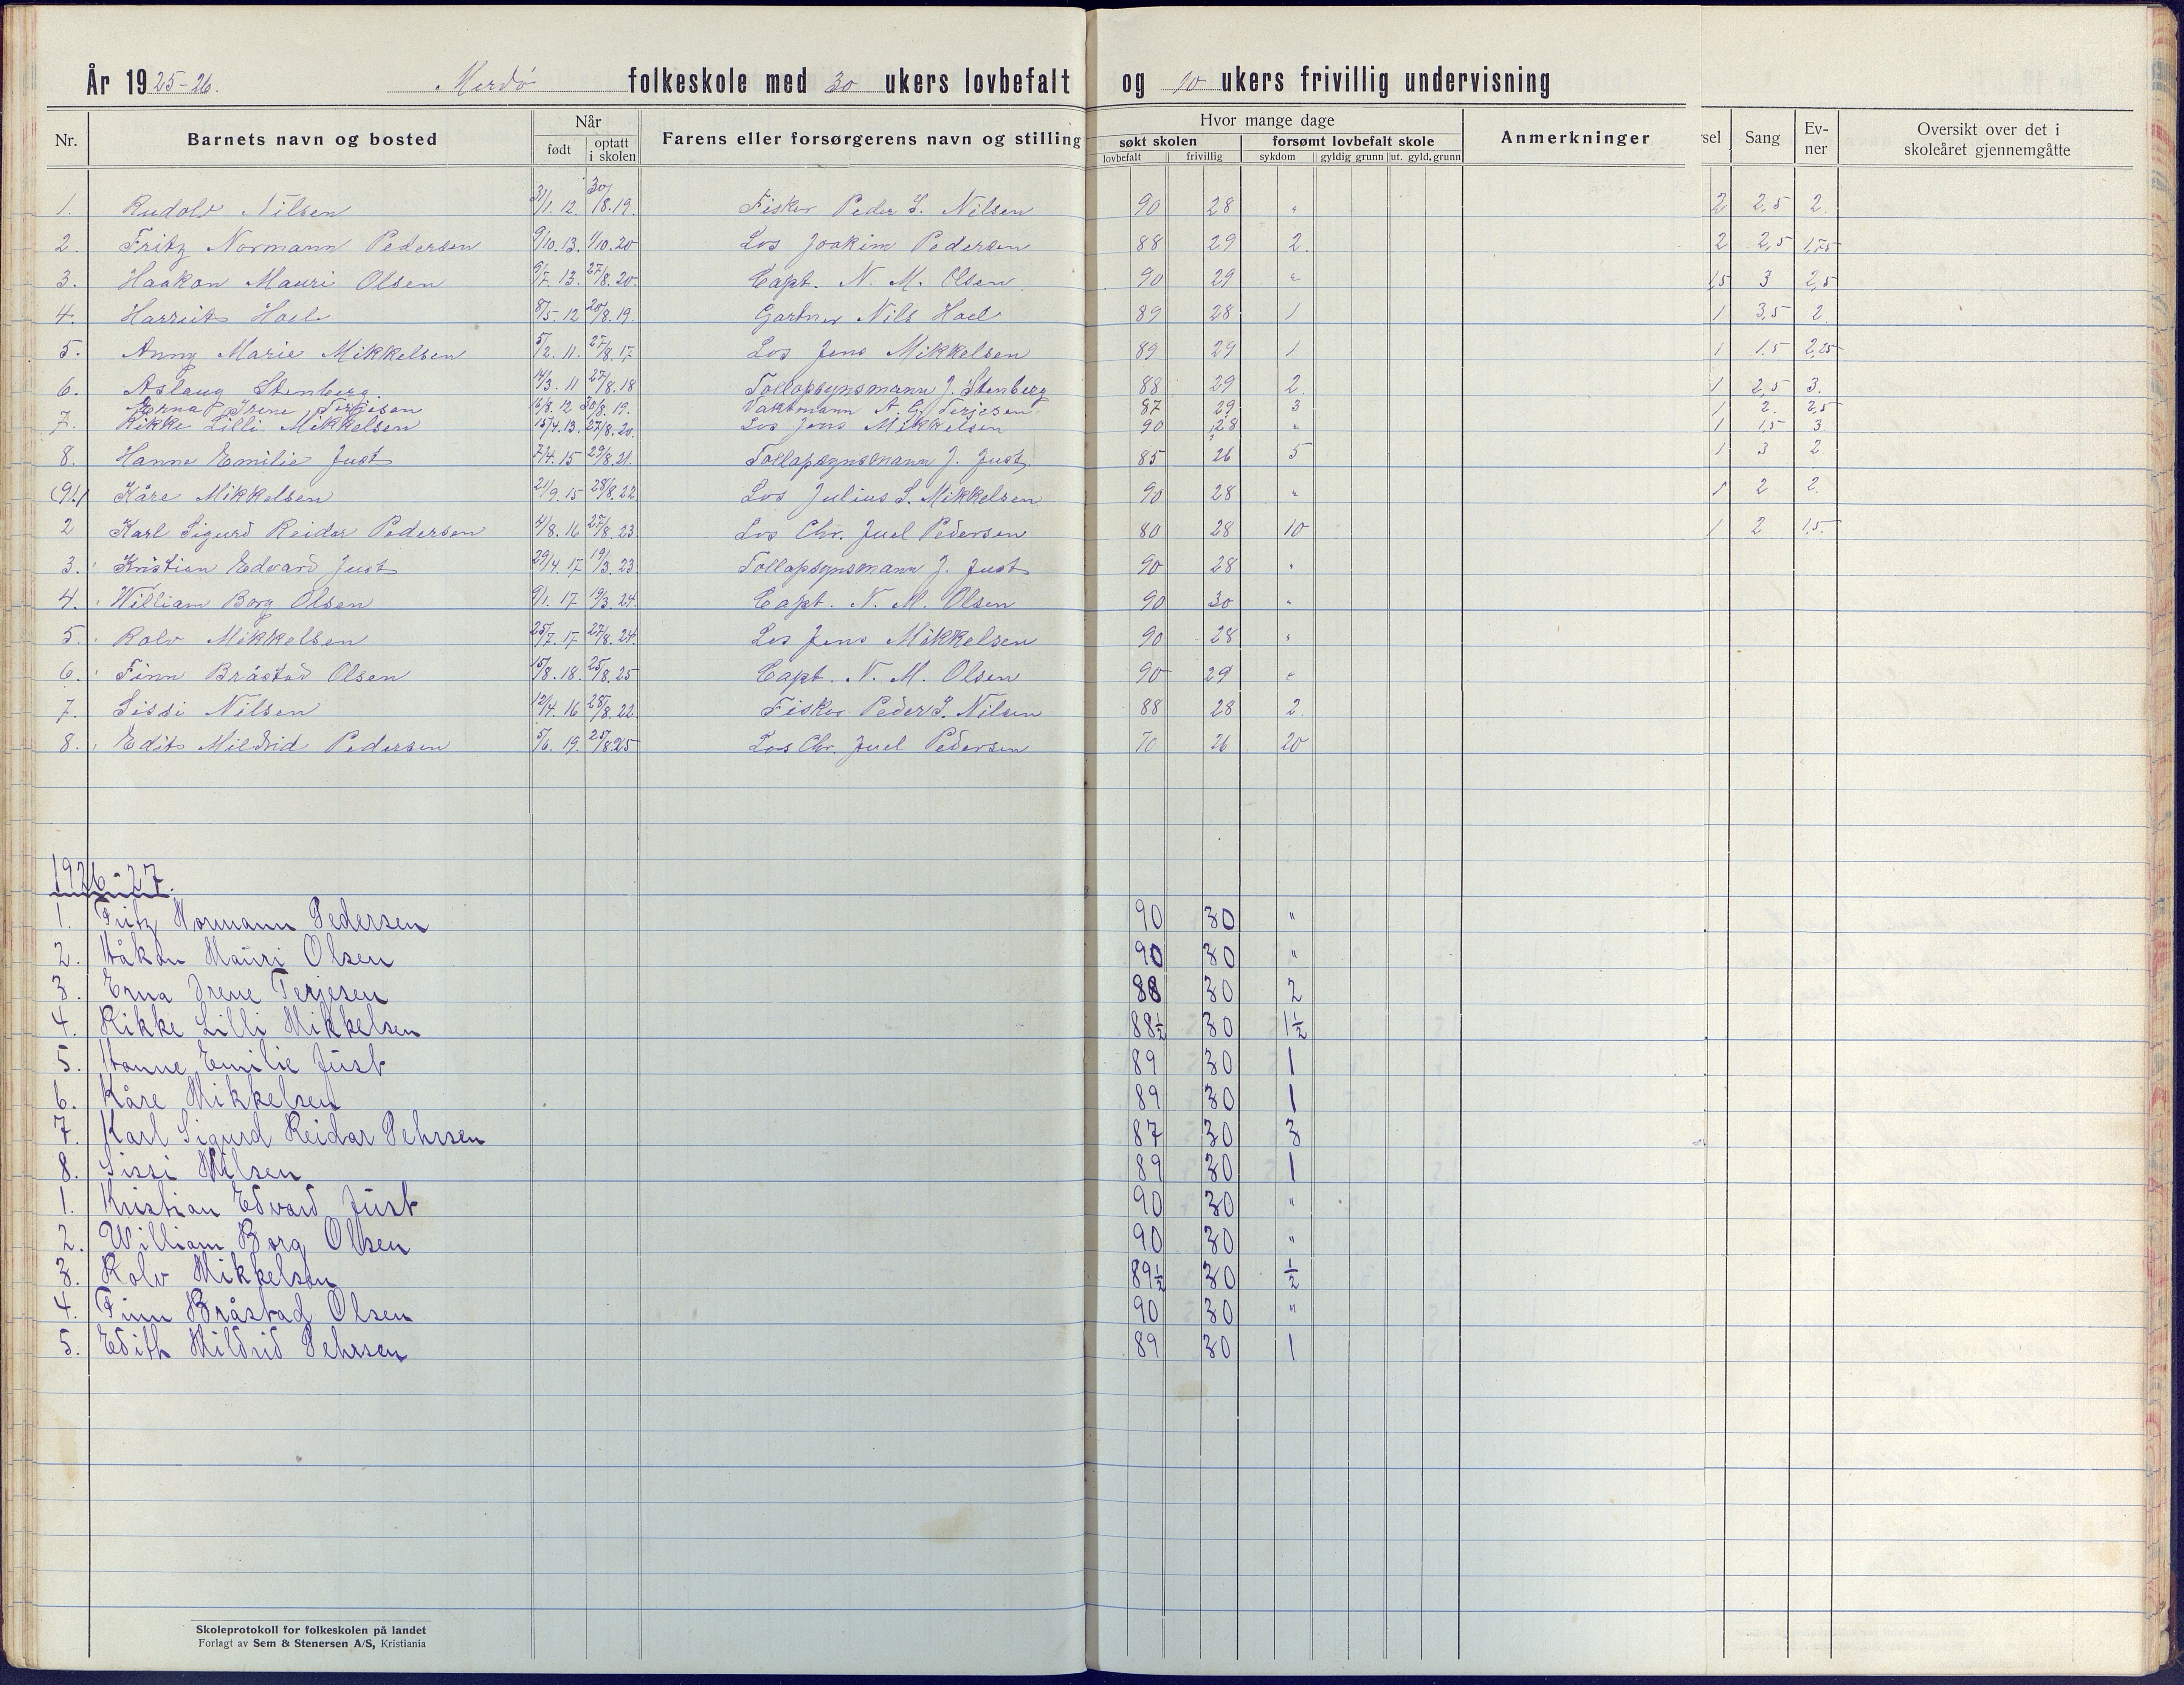 År 1925-26. Merdö folkeskole med 30 ukers lovbefalt og 10 ukers frivillig undervisning
Nr. Barnets navn og bosted Når født optatt i skolen Farens eller forsørgerens navn og stilling Hvor mange dage søkt skolen lovbefalt frivillig forsømt lovbefalt skole sykdom gyldig grunn ut. gyld. grunn Anmerkninger sel Sang Evner Oversikt over det i skoleåret gjennemgåtte
1. Rudolv Nilsen 31/1. 12. 30/8. 19. Fisker Peder S. Nilsen 90 28 " 2 2,5 2.
2. Fritz Normann Pedersen 9/10. 13. 1/10. 20 Los Joakim Pedersen 88 29 2. 2 2,5 1,75
3. Haakon Mauri Olsen 9/7. 13. 27/8. 20. Capt. N. M. Olsen. 90 29 " 1,5 3 2,5
4. Harriet Hoel 8/5. 12 20/8. 19. Gartner Nils Hoel 89 28 1 1 3,5 2.
5. Anny Marie Mikkelsen 5/2. 11. 27/8. 17 Los Jens Mikkelsen 89 29 1 1 1.5 2,25
6. Aslaug Stenberg. 14/3. 11 27/8. 18 Tollopsynsmann J. Stenberg 88 29 2. 1 2,5 3.
Erna Irene Terjesen 16/8. 12 30/8. 19. Vaktmann A. G. Terjesen 87 29 3 1 2. 2,5
7. Rikke Lilli Mikkelsen 15/4. 13. 27/8. 20. Los Jens Mikkelsen 90 28 " 1 1,5 3.
8. Hanne Emilie Just 7/4. 15 29/8. 21. Tollopsynsmann J. Just. 85 26 5 1 3 2.
(9/1) Kåre Mikkelsen 21/9. 15 28/8. 22 Los Julius S. Mikkelsen 90 28 " 1 2 2.
2 Karl Sigurd Reidar Pedersen 4/8. 16 27/8. 23. Los Chr. Juel Pedersen 80 28 10 1 2 1,5.
3. Kristian Edvard Just 29/4. 17 19/3. 23. Tollopsynsmann J. Just 90 28 "
4. William Borg Olsen 9/1. 17 19/3. 24. Capt. N. M. Olsen 90 30 "
5. Rolv Mikkelsen 25/7. 17 27/8. 24. Los Jens Mikkelsen 90 28 "
6. Finn Bråstad Olsen 15/8. 18. 25/8. 25 Capt. N. M. Olsen 90 29 "
7. Sissi Nilsen 12/4. 16 28/8. 22. Fisker Peder S. Nilsen 88 28 2.
8. Edit Mildrid Pedersen 5/6. 19. 25/8. 25 Los Chr. Juel Pedersen 70 26 20
1926-27.
1. Fritz Normann Pedersen 90 30 "
2. Håkon Mauri Olsen 90 30 "
3. Erna Irene Terjesen 88 30 2
4. Rikke Lilli Mikkelsen 88½ 30 1½
5. Hanne Emilie Just 89 30 1
6. Kåre Mikkelsen 89 30 1
7. Karl Sigurd Reidar Pehrsen 87 30 3
8. Sissi Nilsen 89 30 1
1. Kristian Edvard Just 90 30 "
2. William Borg Olsen 90 30 "
3. Rolv Mikkelsen 89½ 30 ½
4. Finn Bråstad Olsen 90 30 "
5. Edith Mildrid Pehrsen 89 30 1
Skoleprotokoll for folkeskolen på landet
Forlagt av Sem & Stenersen A/S, Kristiania